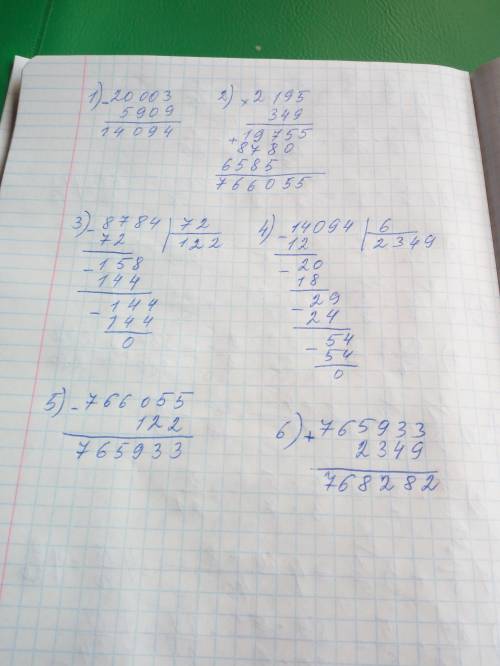 1) - 20003
5909
14094
2) × 2195
349
+ 19755
8780
6585
766055
3) - 8784 | 72
72 122
- 158
144
- 144
144
0
4) - 14094 | 6
12 2349
- 20
18
- 29
24
- 54
54
0
5) - 766055
122
765933
6) + 765933
2349
768282